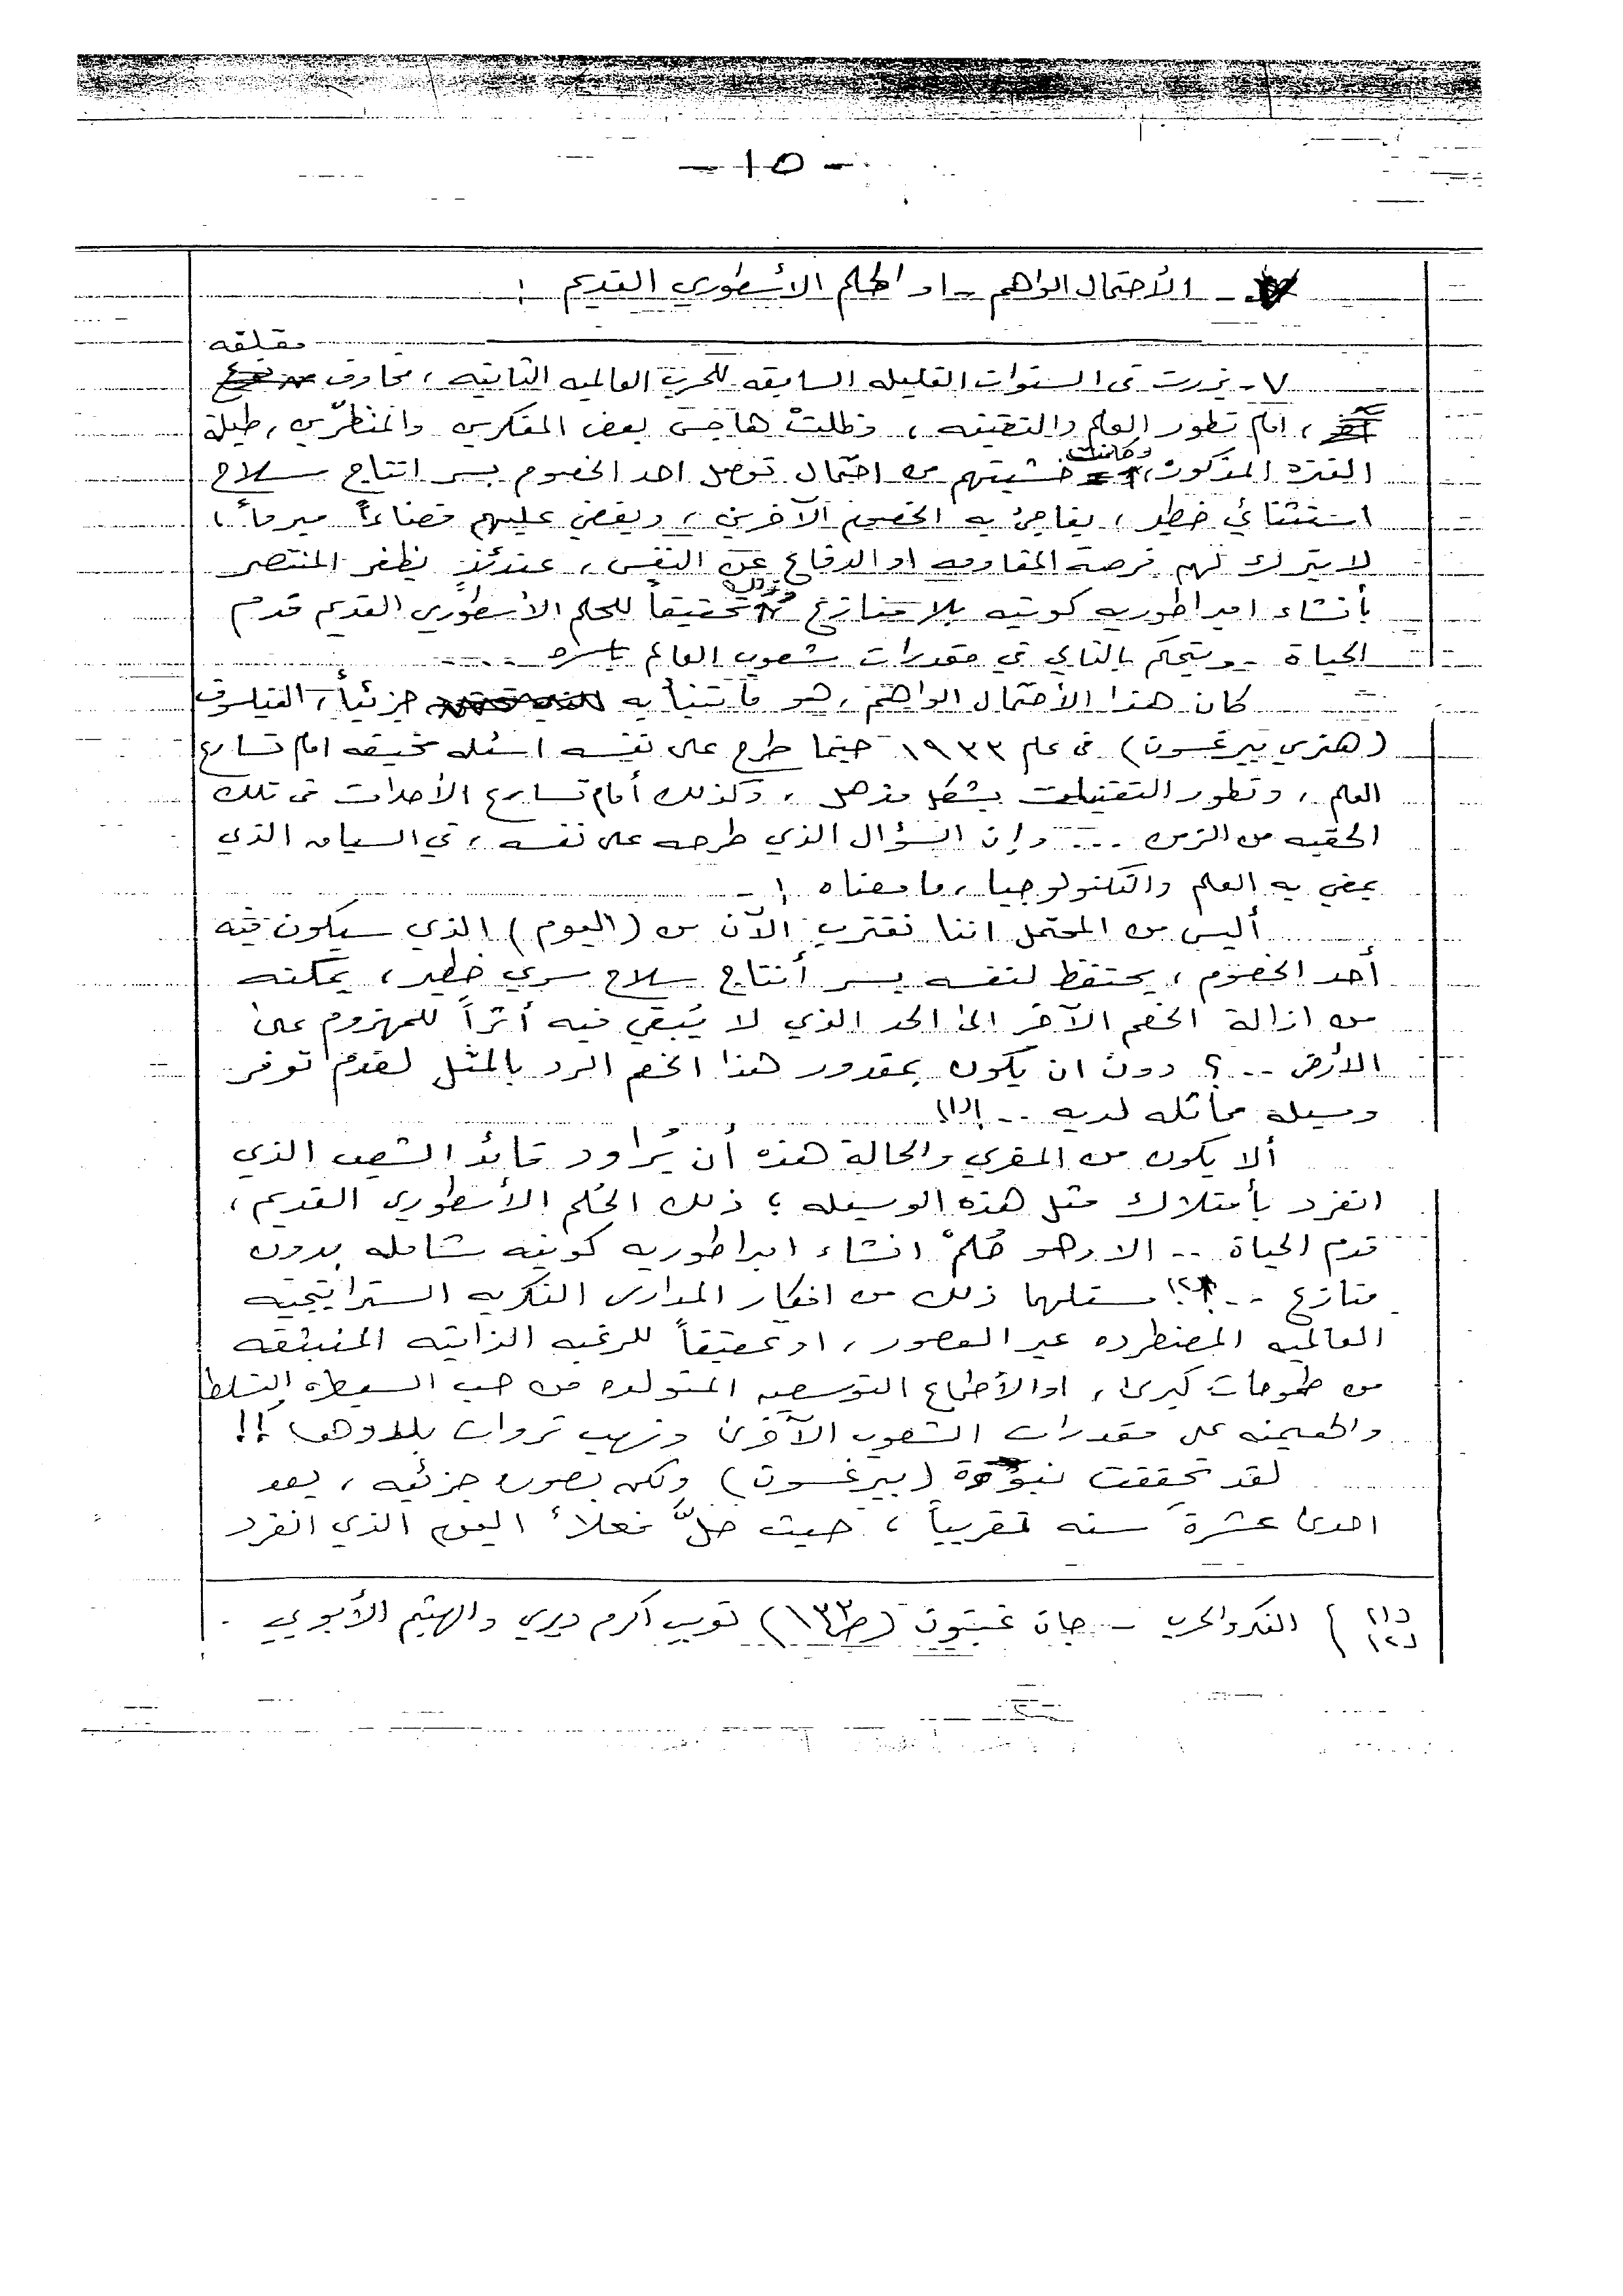 - ١٥ -
- الأحتمال الواهم - او الحلم الأسطوري القديم :
مقلقه
٧- برزت في السنوات القليله السابقه للحرب العالميه الثانيه ، مخاوف
، امام تطور العلم والتقنيه ، وظلت هاجس بعض المفكرين والمنظّرين ، طيلة
الفتره المذكوره ، وكانت خشيتهم من احتمال توصل احد الخصوم بسر انتاج سلاح
استثنائي خطير ، يفاجئ به الخصوم الآخرين ، ويقضي عليهم قضاءاً مبرماً ،
لا يترك لهم فرصة المقاومه او الدفاع عن النفس ، عندئذٍ يظفر المنتصر
بأنشاء امبراطوريه كونيه بلا منازع وذلك تحقيقاً للحلم الأسطوري القديم قدم
الحياة .. ويتحكم بالتالي في مقدرات شعوب العالم بأسره ....
كان هذا الأحتمال الواهم ، هو ما تنبأ به جزئياً ، الفيلسوف
(هنري بيرغسون) في عام ١٩٣٣ حينما طرح على نفسه اسئله مخيفه امام تسارع
العلم ، وتطور التقنيات بشكل مذهل ، وكذلك أمام تسارع الأحداث في تلك
الحقبه من الزمن ... وإن السؤال الذي طرحه على نفسه ، في السياق الذي
يمضي به العلم والتكنولوجيا ، ما معناه : -
أليس من المحتمل اننا نقترب الآن من (اليوم) الذي سيكون فيه
أحد الخصوم ، يحتفظ لنفسه بسر أنتاج سلاح سري خطير ، يمكنه
من ازالة الخصم الآخر الى الحد الذي لا يُبقي فيه أثراً للمهزوم على
الأرض .. ؟ دون ان يكون بمقدور هذا الخصم الرد بالمثل لعدم توفر
وسيله مماثله لديه .. !(١)
ألا يكون من المغري والحالة هذه أن يُراود قائد الشعب الذي
انفرد بأمتلاك مثل هذه الوسيله ؛ ذلك الحُلم الأسطوري القديم ،
قدم الحياة .. الا وهو حُلمْ انشاء امبراطوريه كونيه شامله بدون
منازع .. (٢) مستلهما ذلك من افكار المدارس الفكريه الستراتيجيه
العالميه المضطرده عبر العصور ، او تحقيقاً للرغبه الذاتيه المنبثقه
من طموحات كبرى ، او الأطماع التوسعيه المتولده من حب السيطره والتسلط
والهيمنه على مقدرات الشعوب الآخرى ونهب ثروات بلادها !!
لقد تحققت نبؤة (بيرغسون) ولكن بصوره جزئيه ، بعد
احدى عشرة سنه تقريباً ، حيث حلَّ فعلاً اليوم الذي انفرد
(١)
(٢) ) الفكر والحرب - جان غيتون (ص١٣٢) تعريب اكرم ديري والهيثم الأيوبي .